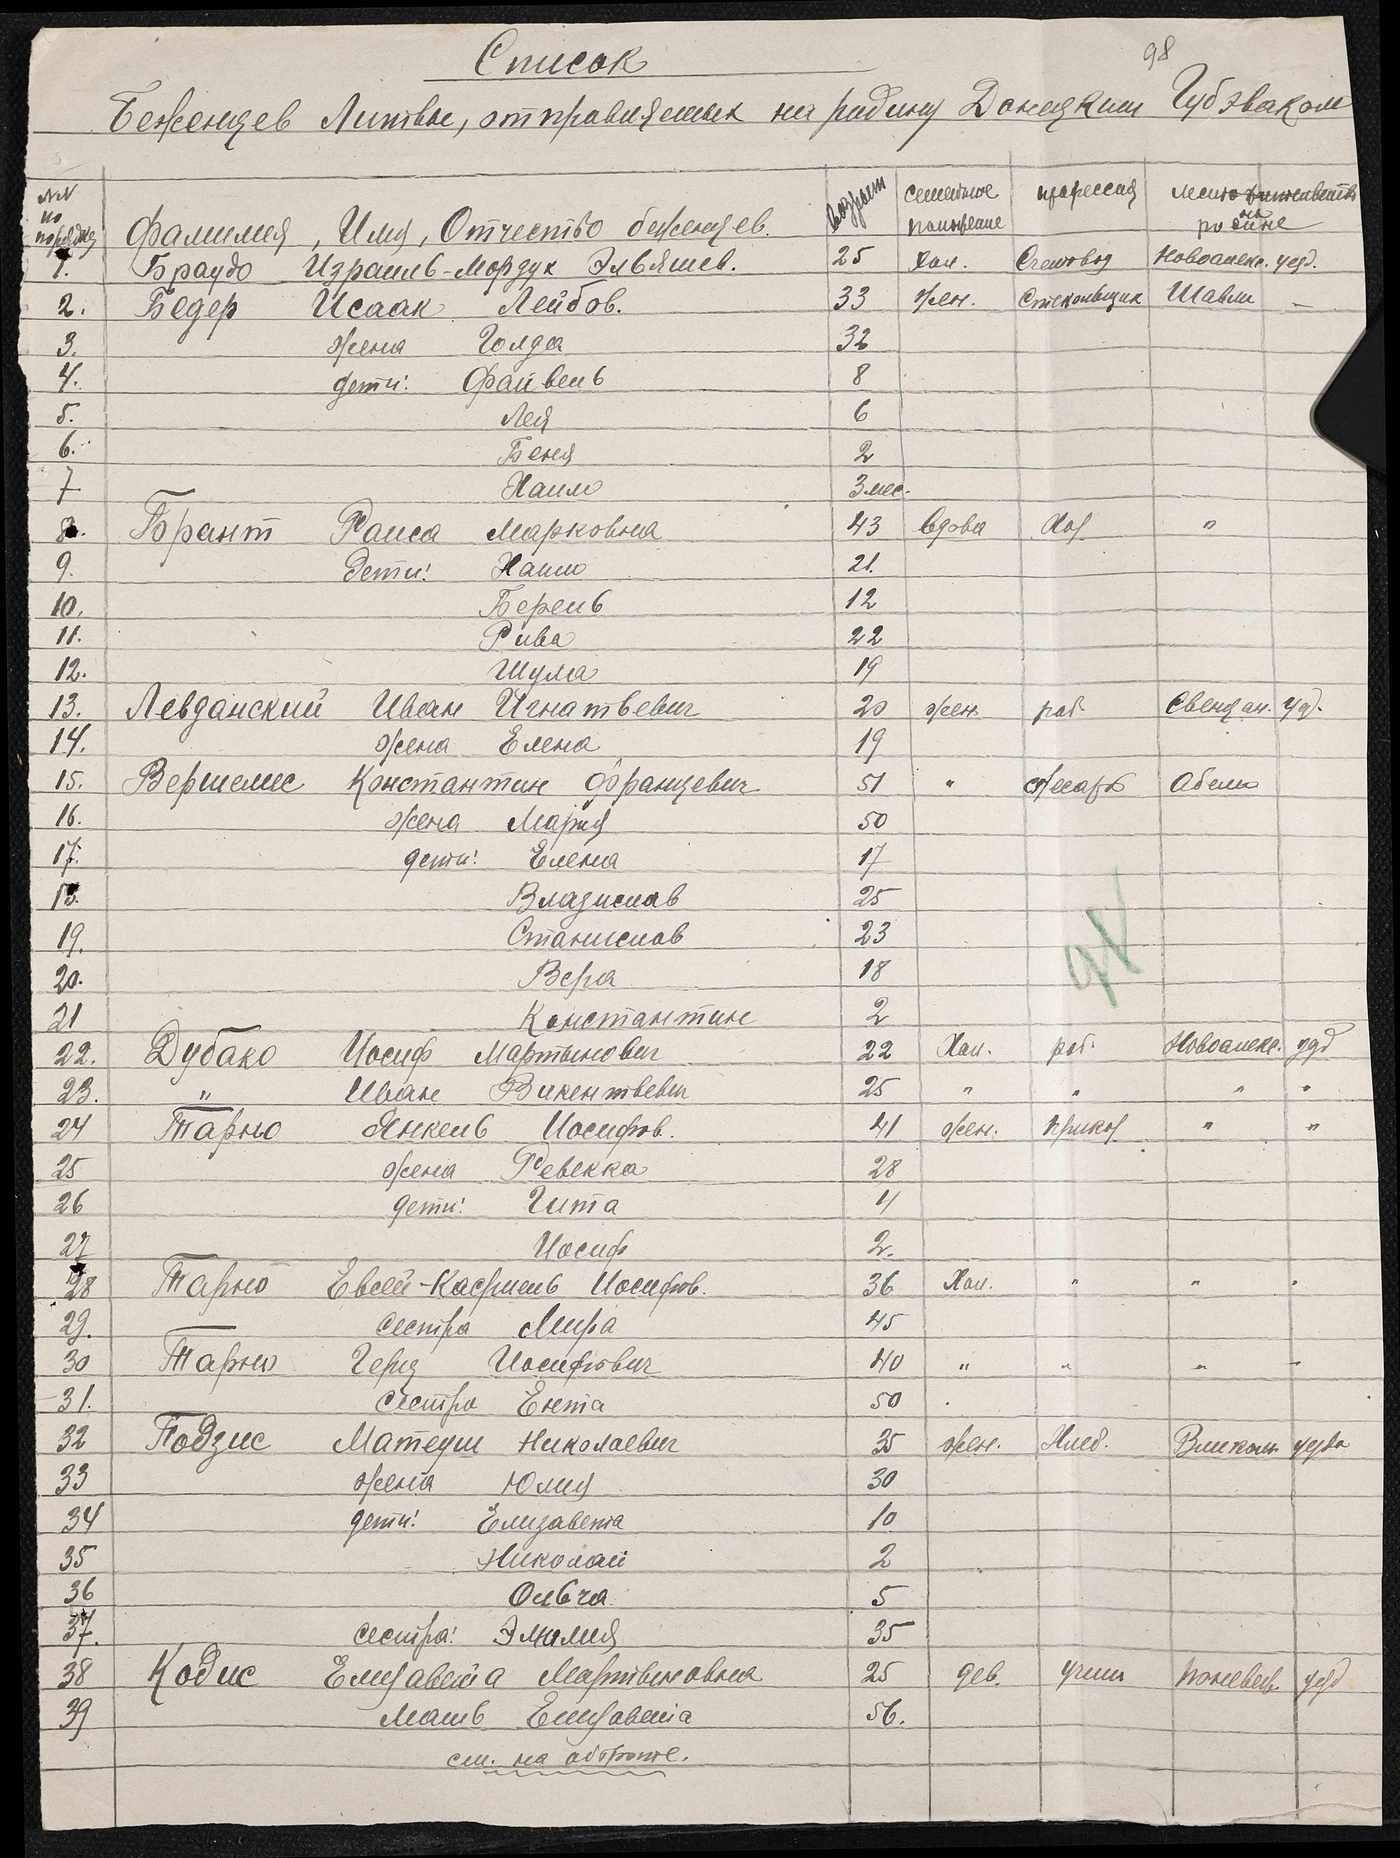 98
Список
Беженцев Литвы, отправляемых на родину Донецким Губэваком
№№ по порядку Фамилия, Имя, Отчество беженцев. возраст семейное положение профессия место жительства на родине
1. Браудо Израиль-Мордух Эльяшев. 25 Хол. Счетовод Новоалекс. уезд.
2. Бедер Исаак Лейбов. 33 жен. Стекольщик Шавли —
3. жена Голда 32
4. дети: Файвель 8
5. Лея 6
6. Беня 2
7 Хаим 3 мес.
8. Брант Раиса Марковна 43 вдова "
9. дети: Хаим 21.
10. Берель 12
11. Рива 22
12. Шума 19
13. Левданский Иван Игнатьевич 20 жен. раб. Свенцян. уд.
14. жена Елена 19
15. Вершелис Константин Францевич 51 " слесарь Абели
16. жена Мария 50
17. дети: Елена 17
18. Владислав 25
19. Станислав 23
20. Вера 18
21 Константин 2
22. Дубако Иосиф Мартынович 22 Хол. раб. Новоалекс. узд
23. " Иван Викентьевич 25 " " " "
24 Тарно Янкель Иосифов. 41 жен. прик " "
25 жена Ревекка 28
26 дети: Гита 4
27 Иосиф 2.
28 Тарно Евсей-Касриель Иосифов. 36 Хол. " " "
29. сестра Мира 45
30 Тарно Герц Иосифович 40 " " " "
31. сестра Ента 50
32 Подзис Матеуш Николаевич 35 жен. Хлеб. Вилком. уезда
33 жена Юлия 30
34 дети: Елизавета 10
35 Николай 2
36 Ольга 5
37. сестра: Эмилия 35
38 Кодис Елизавета Мартыновна 25 дев. учит Поневеж. уезд
39 Мать Елизавета 56.
см. на обороте.